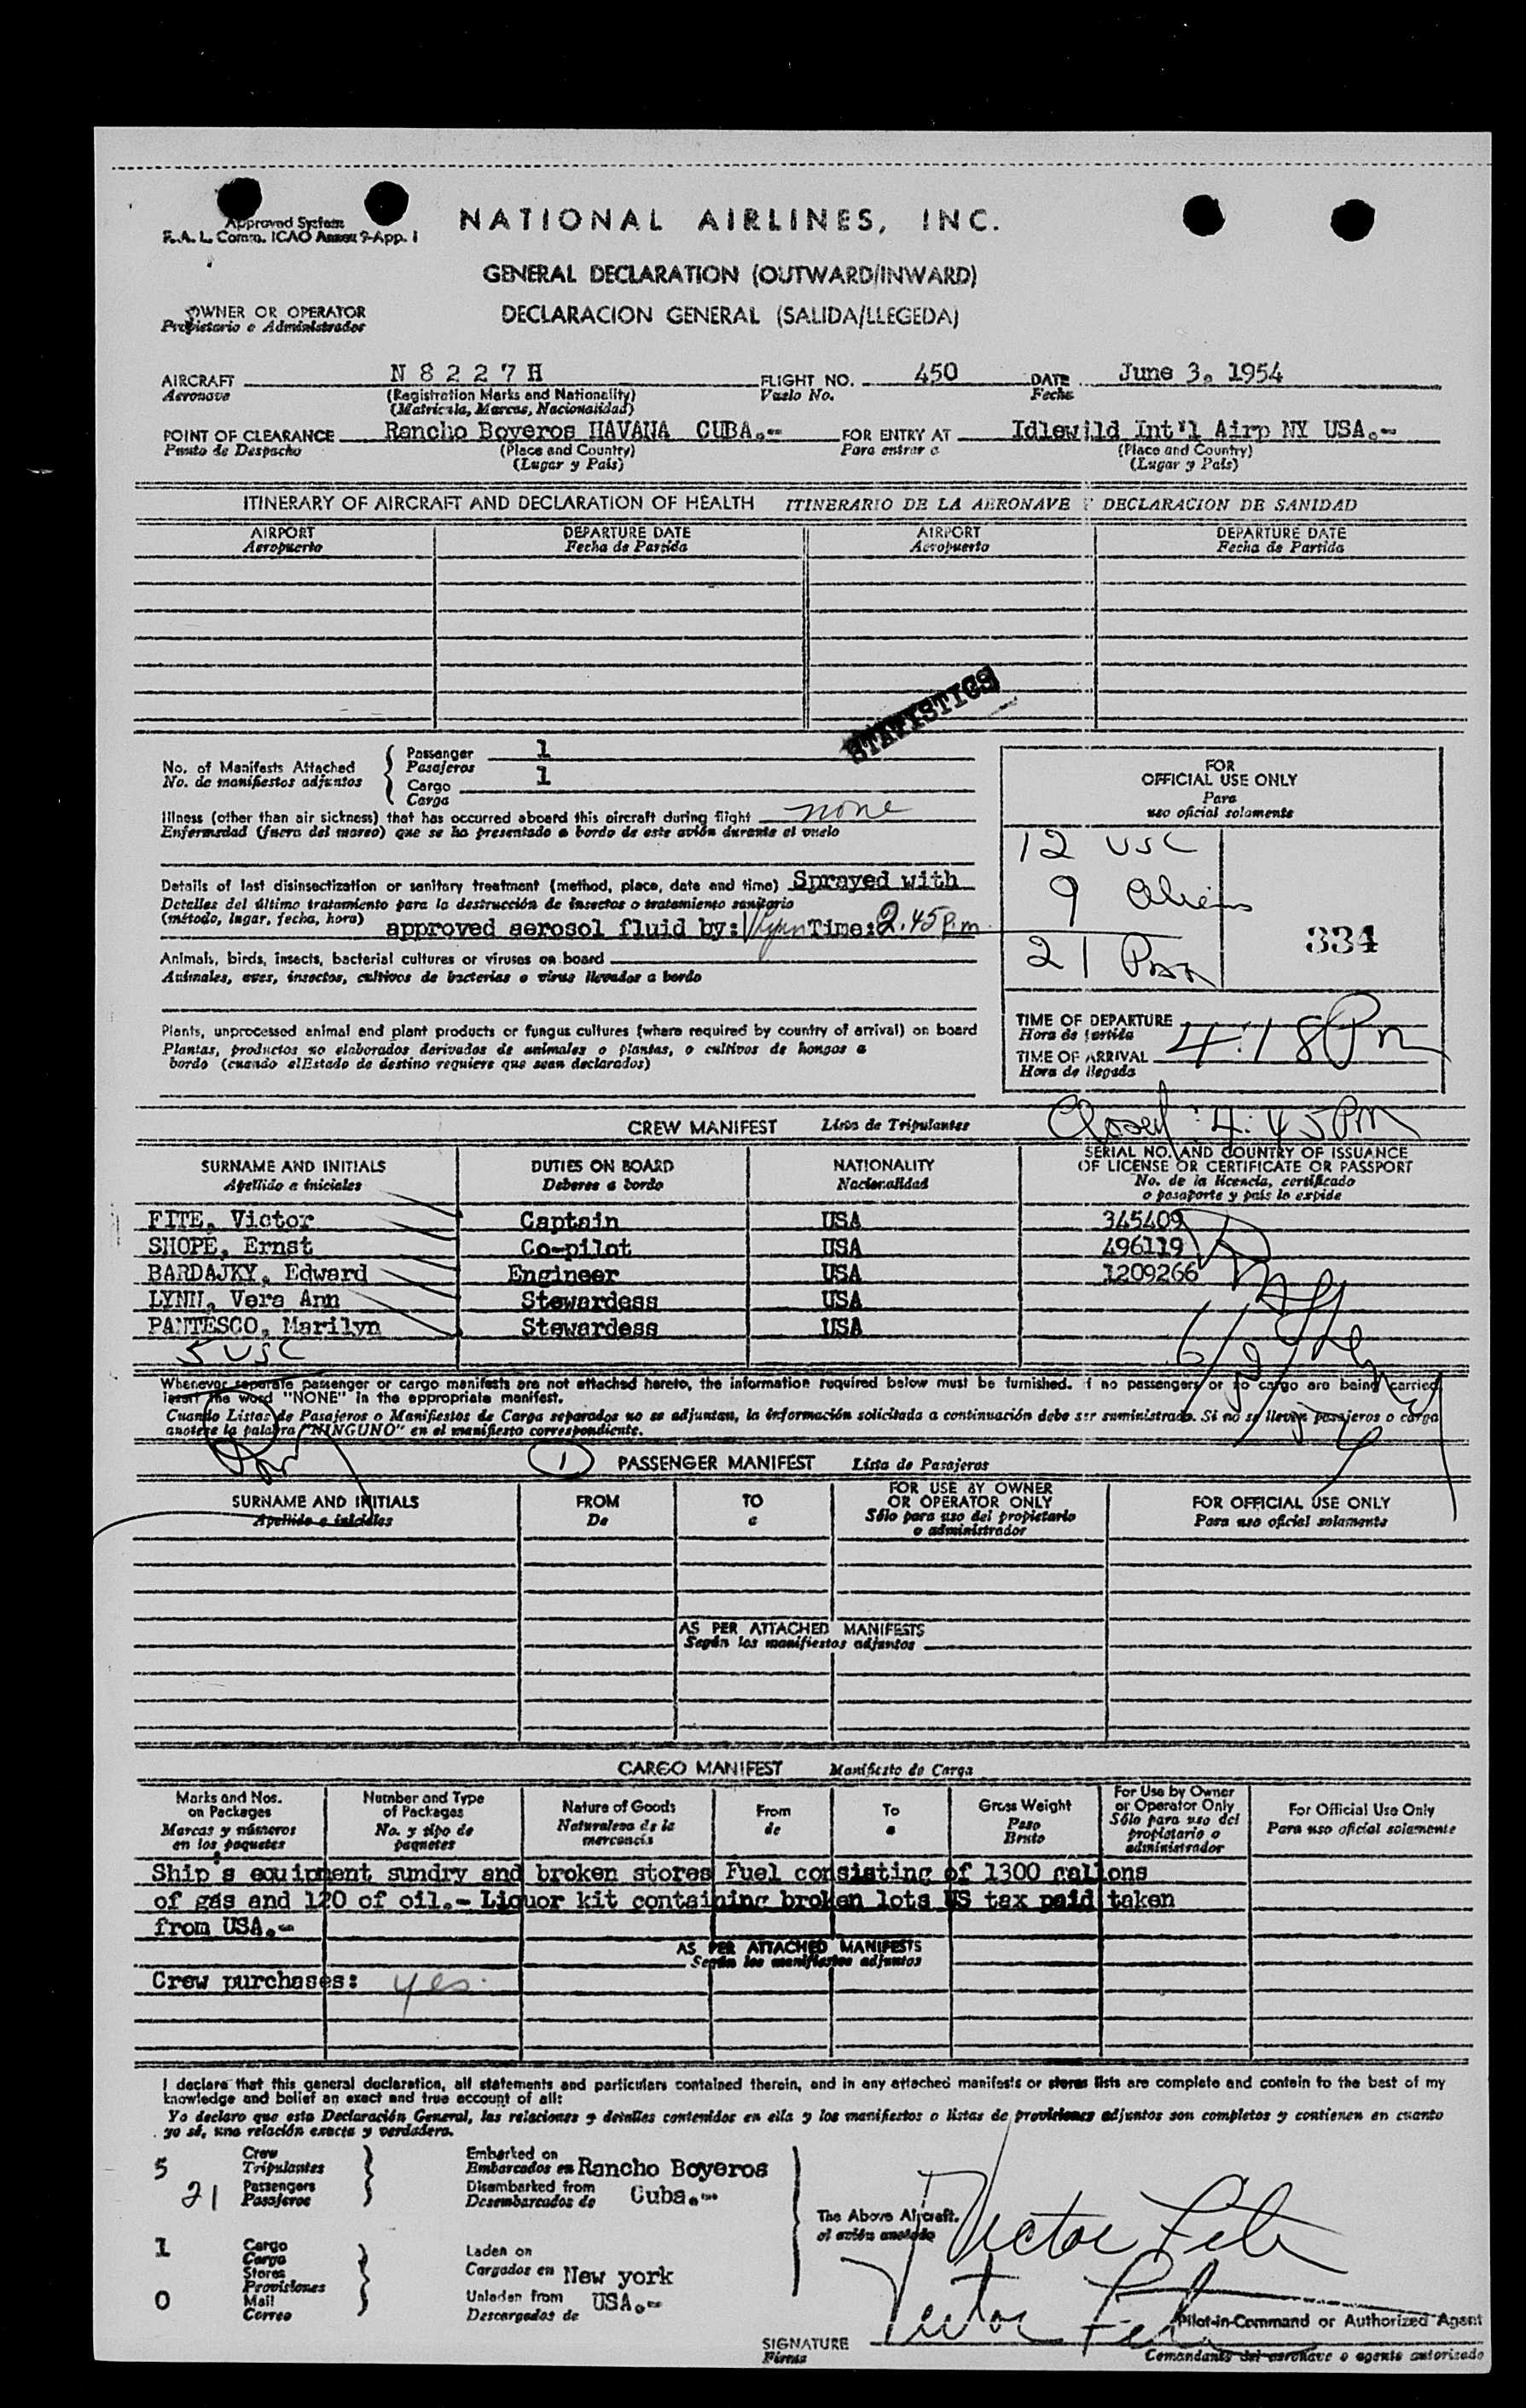 Approved System
F. A. L. Comm. ICAO Annex 9-App. 1
NATIONAL AIRLINES, INC.
GENERAL DECLARATION (OUTWARD/INWARD)
OWNER OR OPERATOR
Propietario o Administrador
DECLARACION GENERAL (SALIDA/LLEGEDA)
AIRCRAFT N 8 2 2 7 H FLIGHT NO. 450 DATE June 3, 1954
Aeronave (Registration Marks and Nationality) Vuelo No. Fecha
(Matricula, Marcas, Nacionalidad)
POINT OF CLEARANCE Rancho Boyeros HAVANA CUBA.- FOR ENTRY AT Idlewild Int'l Airp NY USA.-
Punto de Despacho (Place and Country) Para entrar a (Place and Country)
(Lugar y Pais) (Lugar y Pais)
ITINERARY OF AIRCRAFT AND DECLARATION OF HEALTH ITINERARIO DE LA AERONAVE Y DECLARACION DE SANIDAD
AIRPORT DEPARTURE DATE AIRPORT DEPARTURE DATE
Aeropuerto Fecha de Partida Aeropuerto Fecha de Partida
STATISTICS
No. of Manifests Attached Passenger 1
No. de manifiestos adjuntos Pasajeros
Cargo 1
Carga
Illness (other than air sickness) that has occurred aboard this aircraft during flight none
Enfermedad (fuera del mareo) que se ha presentado a bordo de este avión durante el vuelo
Details of last disinsectization or sanitary treatment (method, place, date and time) Sprayed with
Detalles del último tratamiento para la destrucción de insectos o tratamiento sanitario
(método, lugar, fecha, hora) approved aerosol fluid by: Time: 2.45 p.m.
Animals, birds, insects, bacterial cultures or viruses on board
Animales, aves, insectos, cultivos de bacterias o virus llevados a bordo
Plants, unprocessed animal and plant products or fungus cultures (where required by country of arrival) on board
Plantas, productos no elaborados derivados de animales o plantas, o cultivos de hongos a
bordo (cuando elEstado de destino requiere que sean declarados)
FOR
OFFICIAL USE ONLY
Para
uso oficial solamente
12 USC
9 Aliens
334
21 Pax
TIME OF DEPARTURE
Hora de partida
4:18 Pm
TIME OF ARRIVAL
Hora de llegada
Closed: 4:45 PM
CREW MANIFEST Lista de Tripulantes
SURNAME AND INITIALS DUTIES ON BOARD NATIONALITY SERIAL NO. AND COUNTRY OF ISSUANCE
OF LICENSE OR CERTIFICATE OR PASSPORT
Apellido e iniciales Deberes a bordo Nacionalidad No. de la licencia, certificado
o pasaporte y pais lo expide
FITE, Victor Captain USA 345409
SHOPE, Ernst Co-pilot USA 496119
BARDAJKY, Edward Engineer USA 1209266
LYNN, Vera Ann Stewardess USA
PANTESCO, Marilyn Stewardess USA
5 USC
6/3/54
Whenever separate passenger or cargo manifests are not attached hereto, the information required below must be furnished. If no passengers or no cargo are being carried,
insert the word "NONE" in the appropriate manifest.
Cuando Listas de Pasajeros o Manifiestos de Carga separados no se adjuntan, la información solicitada a continuación debe ser suministrada. Si no se lleven pasajeros o carga
anotese la palabra "NINGUNO" en el manifiesto correspondiente.
1 PASSENGER MANIFEST Lista de Pasajeros
SURNAME AND INITIALS FROM TO FOR USE BY OWNER FOR OFFICIAL USE ONLY
OR OPERATOR ONLY
Apellido e iniciales De a Sólo para uso del propietario Para uso oficial solamente
o administrador
AS PER ATTACHED MANIFESTS
Según los manifiestos adjuntos
CARGO MANIFEST Manifiesto de Carga
Marks and Nos. on Packages Number and Type of Packages Nature of Goods From To Gross Weight For Use by Owner or Operator Only For Official Use Only
Marcas y números en los paquetes No. y tipo de paquetes Naturaleza de la mercancia de a Peso Bruto Sólo para uso del propietario o administrador Para uso oficial solamente
Ship's equipment sundry and broken stores Fuel consisting of 1300 gallons
of gas and 120 of oil.- Liquor kit containing broken lots US tax paid taken
from USA.-
AS PER ATTACHED MANIFESTS
Según los manifiestos adjuntos
Crew purchases: yes.
I declare that this general declaration, all statements and particulars contained therein, and in any attached manifests or stores lists are complete and contain to the best of my
knowledge and belief an exact and true account of all:
Yo declaro que esta Declaración General, las relaciones y detalles contenidos en ella y los manifiestos o listas de provisiones adjuntos son completos y contienen en cuanto
yo sé, una relación exacta y verdadera.
5 Crew Embarked on
Tripulantes Embarcados en Rancho Boyeros
21 Passengers Disembarked from
Pasajeros Desembarcados de Cuba.-
The Above Aircraft.
el avión anotado
Victor Fite
1 Cargo Laden on
Carga Cargados en New york
Stores
Provisiones
0 Mail Unladen from USA.-
Correo Descargados de
Victor Fite
Pilot-in-Command or Authorized Agent
SIGNATURE
Firma
Comandante del aeronave o agente autorizado